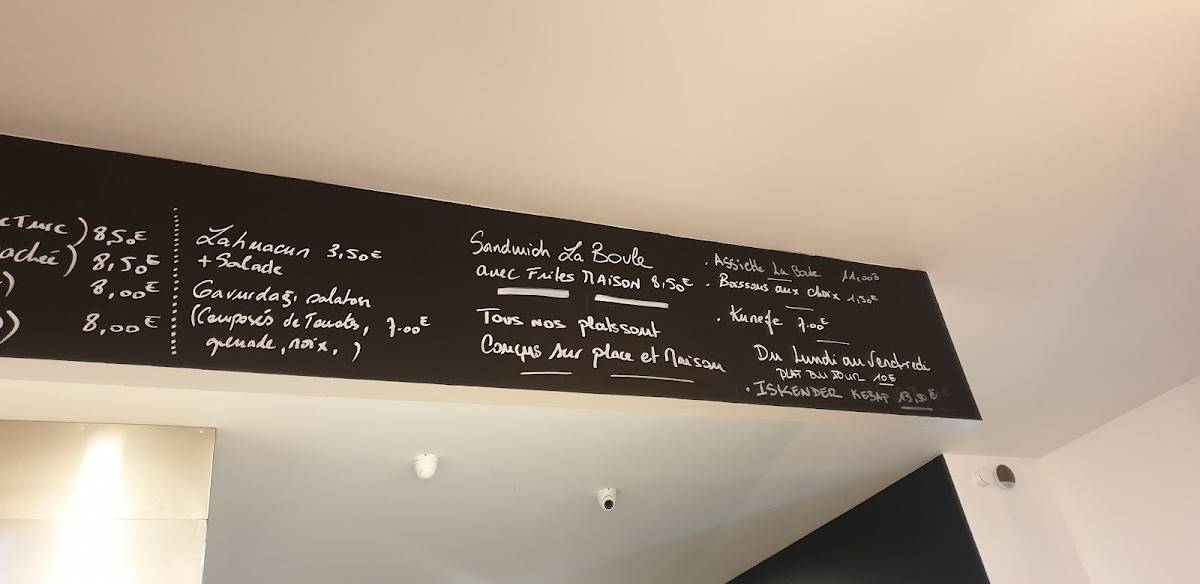 8,50€
8,50€
8,00€
8,00€
Lahmacun 3,50€
+ Salade
Gavurdagi salatası
(Composés de Tomates, 7.00€
grenade, noix, )
Sandwich La Boule
avec Frites MAISON 8,50€
Tous nos plats sont
Conçus sur place et Maison
. Assiette La Boule 11,00€
. Boissons aux choix 1,50€
. Kunefe 7.00€
Du Lundi au Vendredi
PLAT DU JOUR 10€
. ISKENDER KEBAP 13,50€